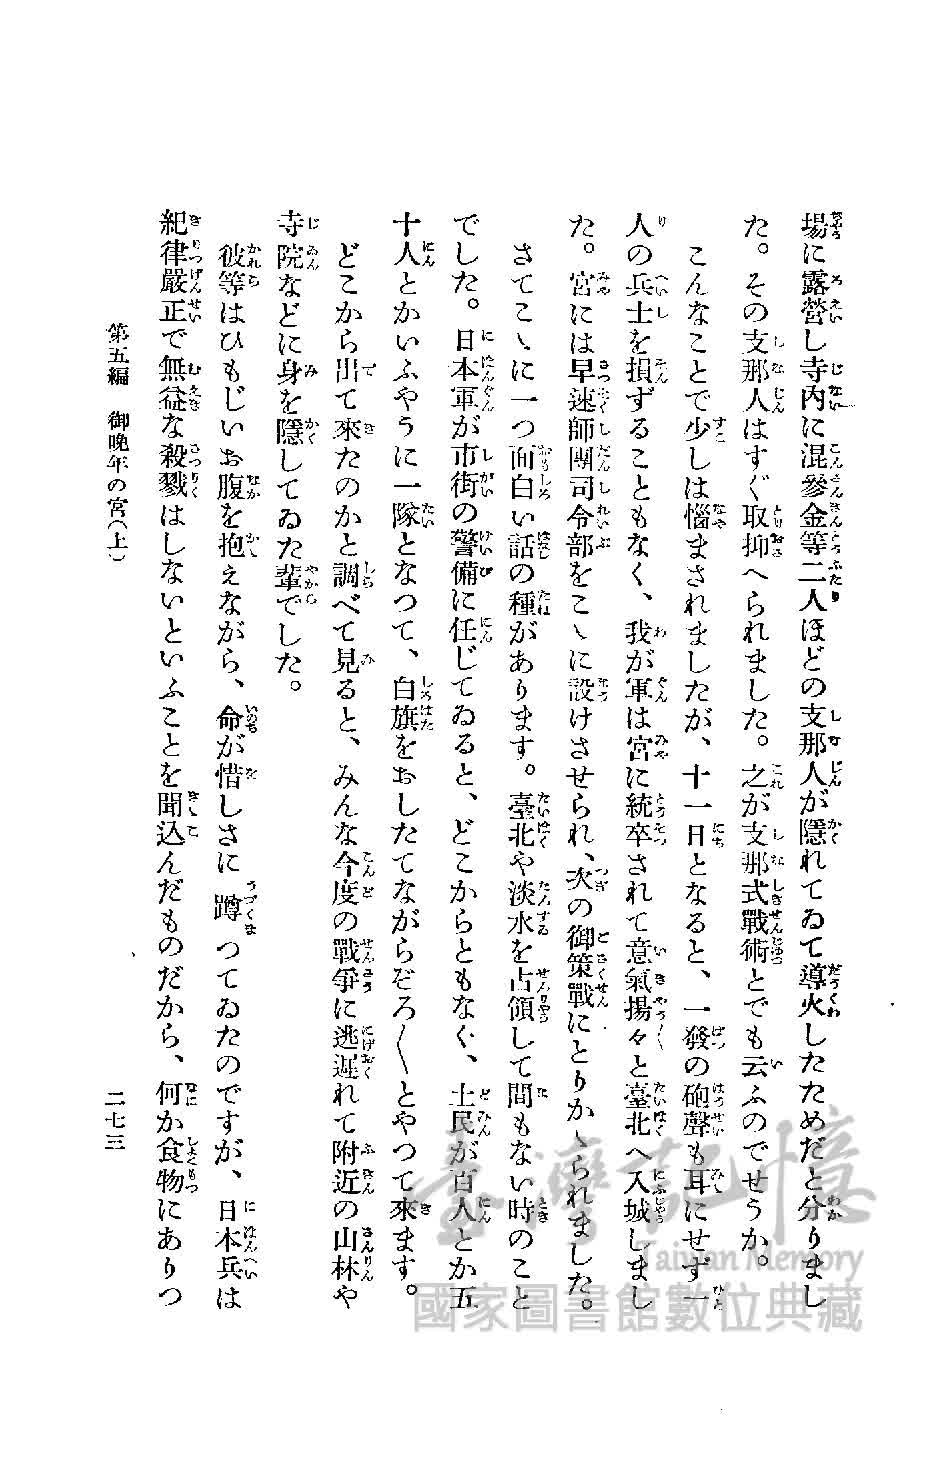 場に露營し寺内に混參金等二人ほどの支那人が隱れてゐて導火したためだと分りまし
た。その支那人はすぐ取抑へられました。之が支那式戰術とでも云ふのでせうか。
こんなことで少しは惱まされましたが、十一日となると、一發の砲聲も耳にせず一
人の兵士を損ずることもなく、我が軍は宮に統卒されて意氣揚々と臺北へ入城しまし
た。宮には早速師團司令部をこゝに設けさせられ、次の御策戰にとりかゝられました。
さてこゝに一つ面白い話の種があります。臺北や淡水を占領して間もない時のこと
でした。日本軍が市街の警備に任じてゐると、どこからともなく、土民が百人とか五
十人とかいふやうに一隊となつて、白旗をおしたてながらぞろ〱とやつて來ます。
どこから出て來たのかと調べて見ると、みんな今度の戰爭に逃遲れて附近の山林や
寺院などに身を隱してゐた輩でした。
彼等はひもじいお腹を抱えながら、命が惜しさに蹲つてゐたのですが、日本兵は
紀律嚴正で無益な殺戮はしないといふことを聞込んだものだから、何か食物にありつ
第五編 御晩年の宮(上)
二七三
臺灣記憶
Taiwan Memory
國家圖書館數位典藏